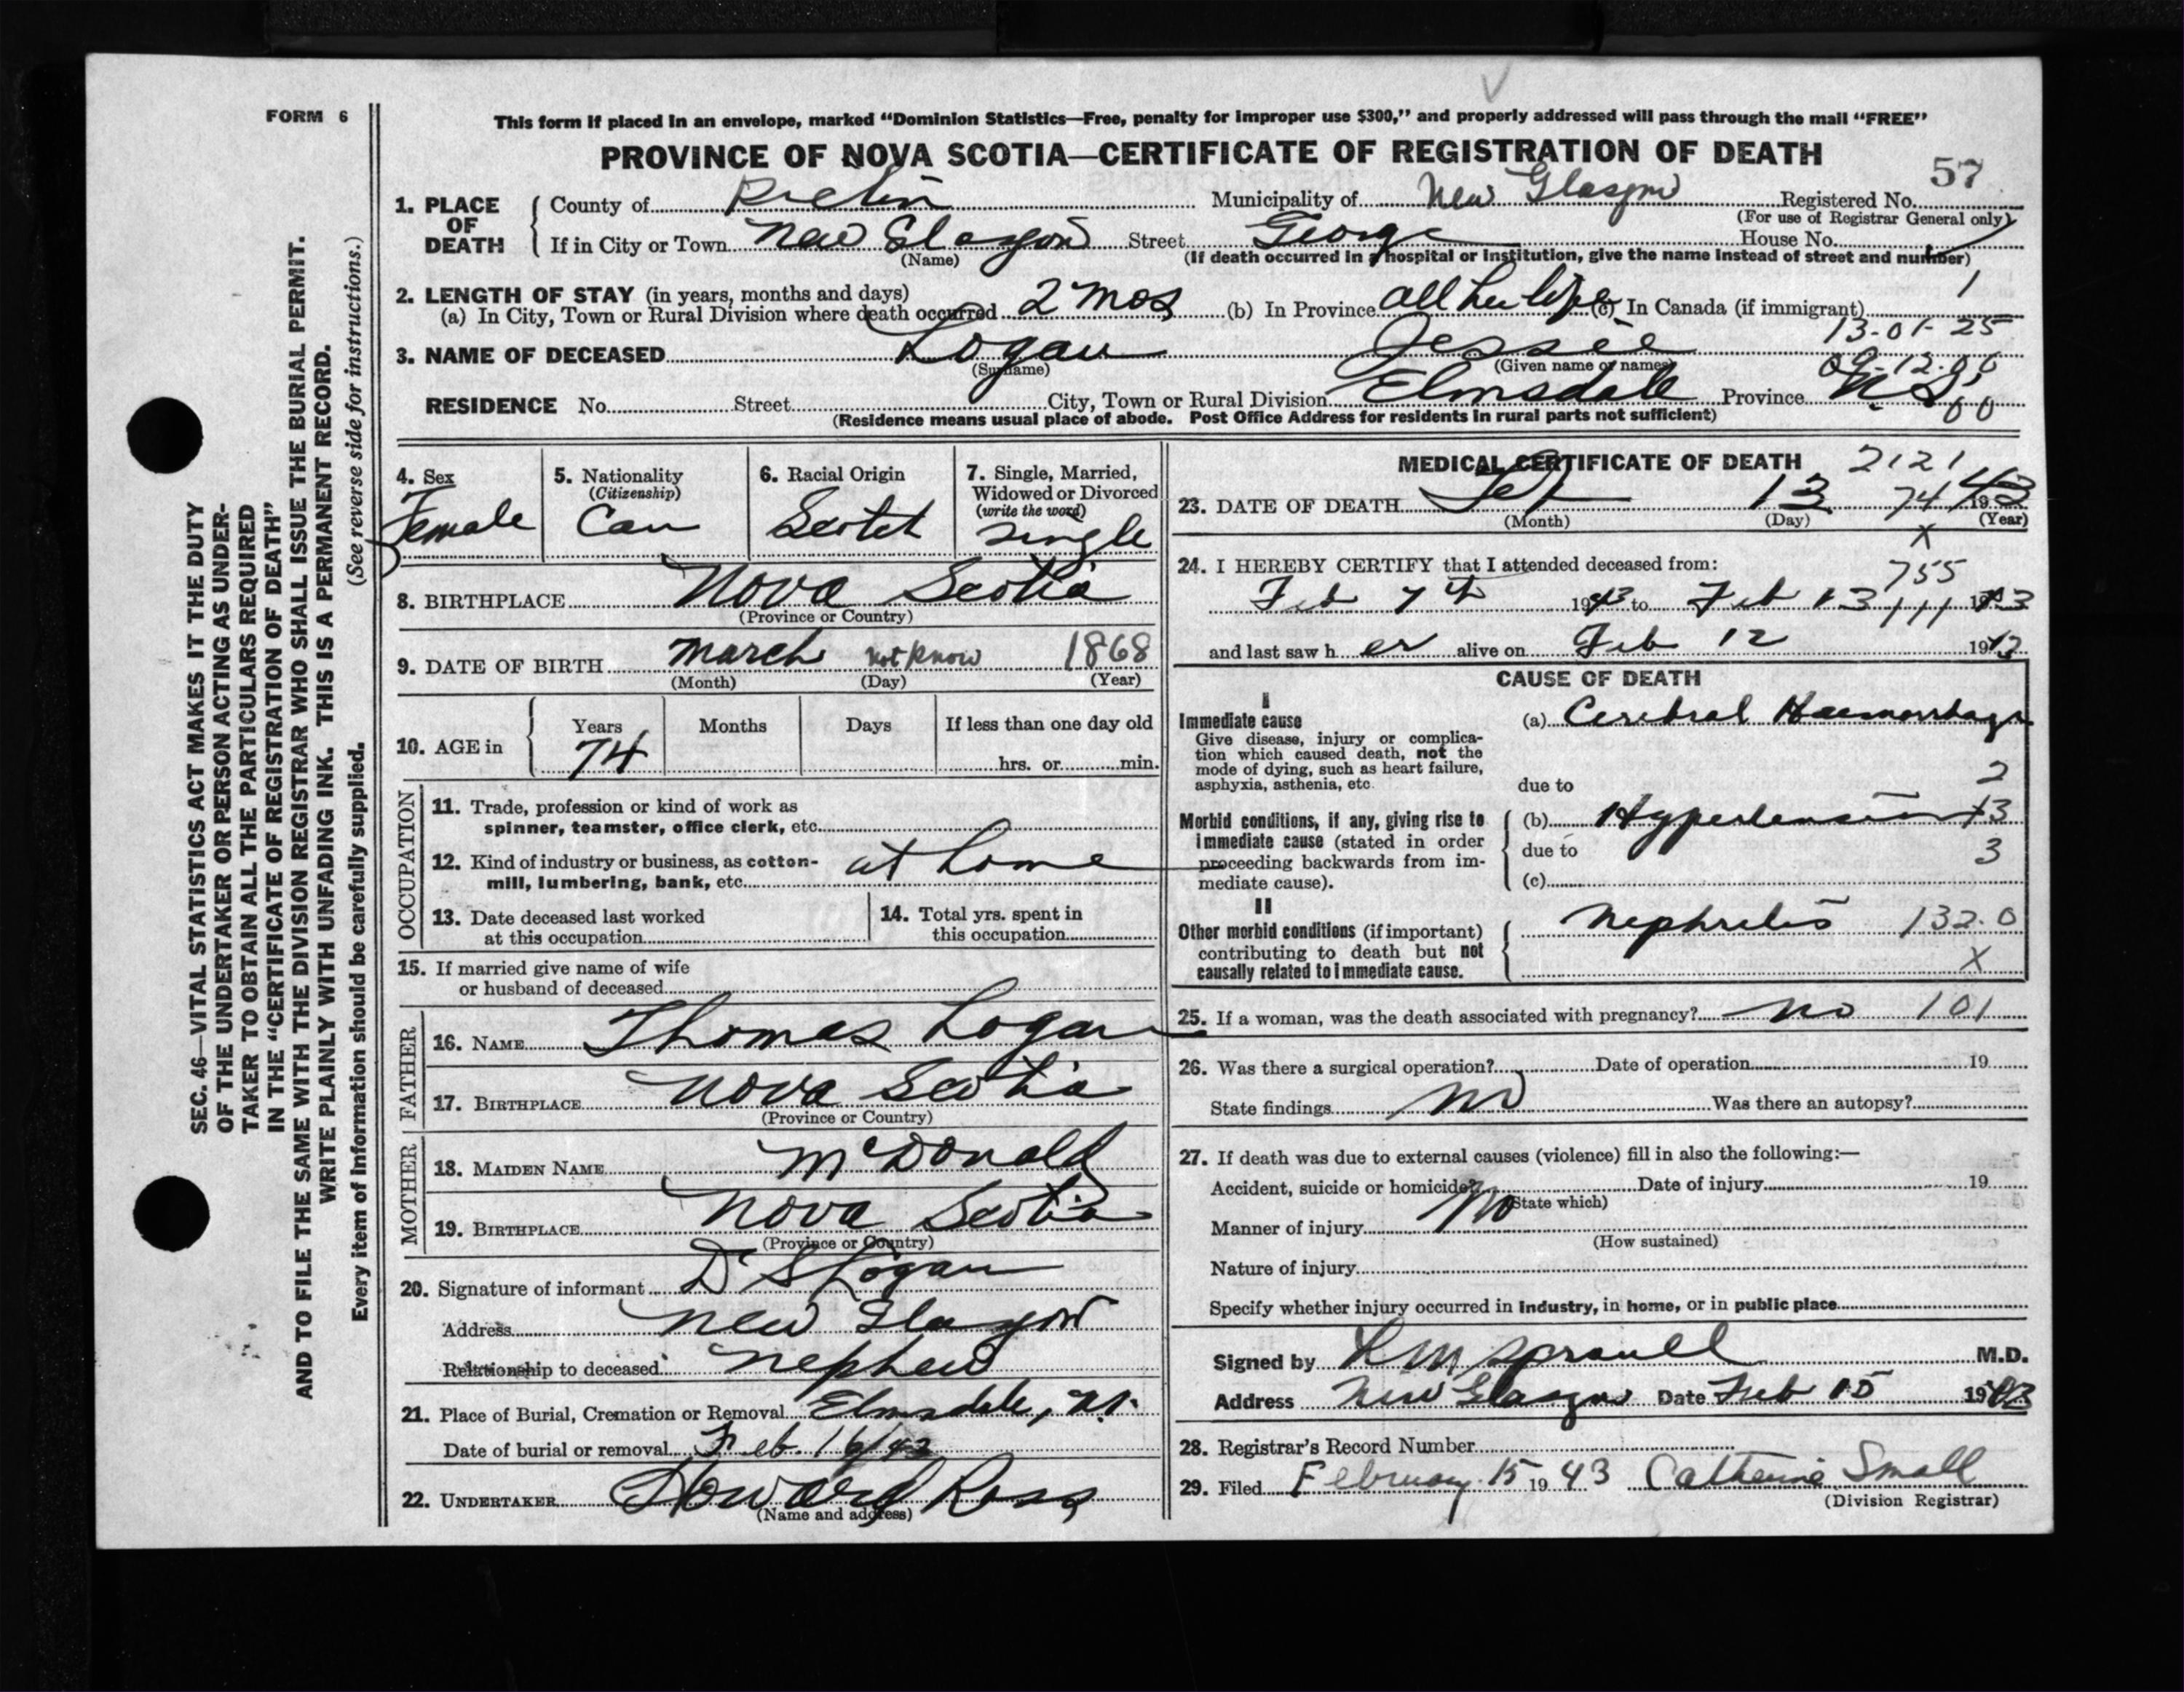 FORM 6
This form if placed in an envelope, marked “Dominion Statistics—Free, penalty for improper use $300,” and properly addressed will pass through the mail “FREE”
PROVINCE OF NOVA SCOTIA—CERTIFICATE OF REGISTRATION OF DEATH
57
1. PLACE OF DEATH { County of Pictou Municipality of New Glasgow Registered No.
(For use of Registrar General only)
If in City or Town New Glasgow Street George House No.
(Name) (If death occurred in a hospital or institution, give the name instead of street and number)
2. LENGTH OF STAY (in years, months and days)
(a) In City, Town or Rural Division where death occurred 2 mos (b) In Province all her life (c) In Canada (if immigrant) 1
13-01-25
3. NAME OF DECEASED Logan Jessie
(Surname) (Given name or names)
RESIDENCE No. Street City, Town or Rural Division Elmsdale Province N.S.
(Residence means usual place of abode. Post Office Address for residents in rural parts not sufficient)
4. Sex Female
5. Nationality (Citizenship) Can
6. Racial Origin Scotch
7. Single, Married, Widowed or Divorced (write the word) Single
8. BIRTHPLACE Nova Scotia
(Province or Country)
9. DATE OF BIRTH March not know 1868
(Month) (Day) (Year)
10. AGE in Years Months Days If less than one day old
74 hrs. or min.
OCCUPATION
11. Trade, profession or kind of work as
spinner, teamster, office clerk, etc.
12. Kind of industry or business, as cotton-
mill, lumbering, bank, etc. at home
13. Date deceased last worked
at this occupation
14. Total yrs. spent in
this occupation
15. If married give name of wife
or husband of deceased
FATHER
16. NAME Thomas Logan
17. BIRTHPLACE Nova Scotia
(Province or Country)
MOTHER
18. MAIDEN NAME McDonald
19. BIRTHPLACE Nova Scotia
(Province or Country)
20. Signature of informant D S Logan
Address New Glasgow
Relationship to deceased nephew
21. Place of Burial, Cremation or Removal Elmsdale, N.S.
Date of burial or removal Feb. 16/43
22. UNDERTAKER Howard Ross
(Name and address)
MEDICAL CERTIFICATE OF DEATH 2121
23. DATE OF DEATH Feb 13 74 1943
(Month) (Day) (Year)
X
24. I HEREBY CERTIFY that I attended deceased from:
755
Feb 7th 1943 to Feb 13 111 1943
and last saw h er alive on Feb 12 1943
CAUSE OF DEATH
I
Immediate cause (a) Cerebral Haemorrhage
Give disease, injury or complica-
tion which caused death, not the
mode of dying, such as heart failure,
asphyxia, asthenia, etc. due to 2
Morbid conditions, if any, giving rise to (b) Hypertension 3
immediate cause (stated in order due to 3
proceeding backwards from im-
mediate cause). (c)
II
Other morbid conditions (if important) Nephritis 132.0
contributing to death but not
causally related to immediate cause. X
25. If a woman, was the death associated with pregnancy? No 101
26. Was there a surgical operation? Date of operation 19
State findings No Was there an autopsy?
27. If death was due to external causes (violence) fill in also the following:—
Accident, suicide or homicide? No Date of injury 19
(State which)
Manner of injury
(How sustained)
Nature of injury
Specify whether injury occurred in industry, in home, or in public place
Signed by M.D.
Address New Glasgow Date Feb 15 1943
28. Registrar's Record Number
29. Filed February 15 1943 Catherine Small
(Division Registrar)
SEC. 46—VITAL STATISTICS ACT MAKES IT THE DUTY
OF THE UNDERTAKER OR PERSON ACTING AS UNDER-
TAKER TO OBTAIN ALL THE PARTICULARS REQUIRED
IN THE “CERTIFICATE OF REGISTRATION OF DEATH”
AND TO FILE THE SAME WITH THE DIVISION REGISTRAR WHO SHALL ISSUE THE BURIAL PERMIT.
WRITE PLAINLY WITH UNFADING INK. THIS IS A PERMANENT RECORD.
Every item of information should be carefully supplied. (See reverse side for instructions.)